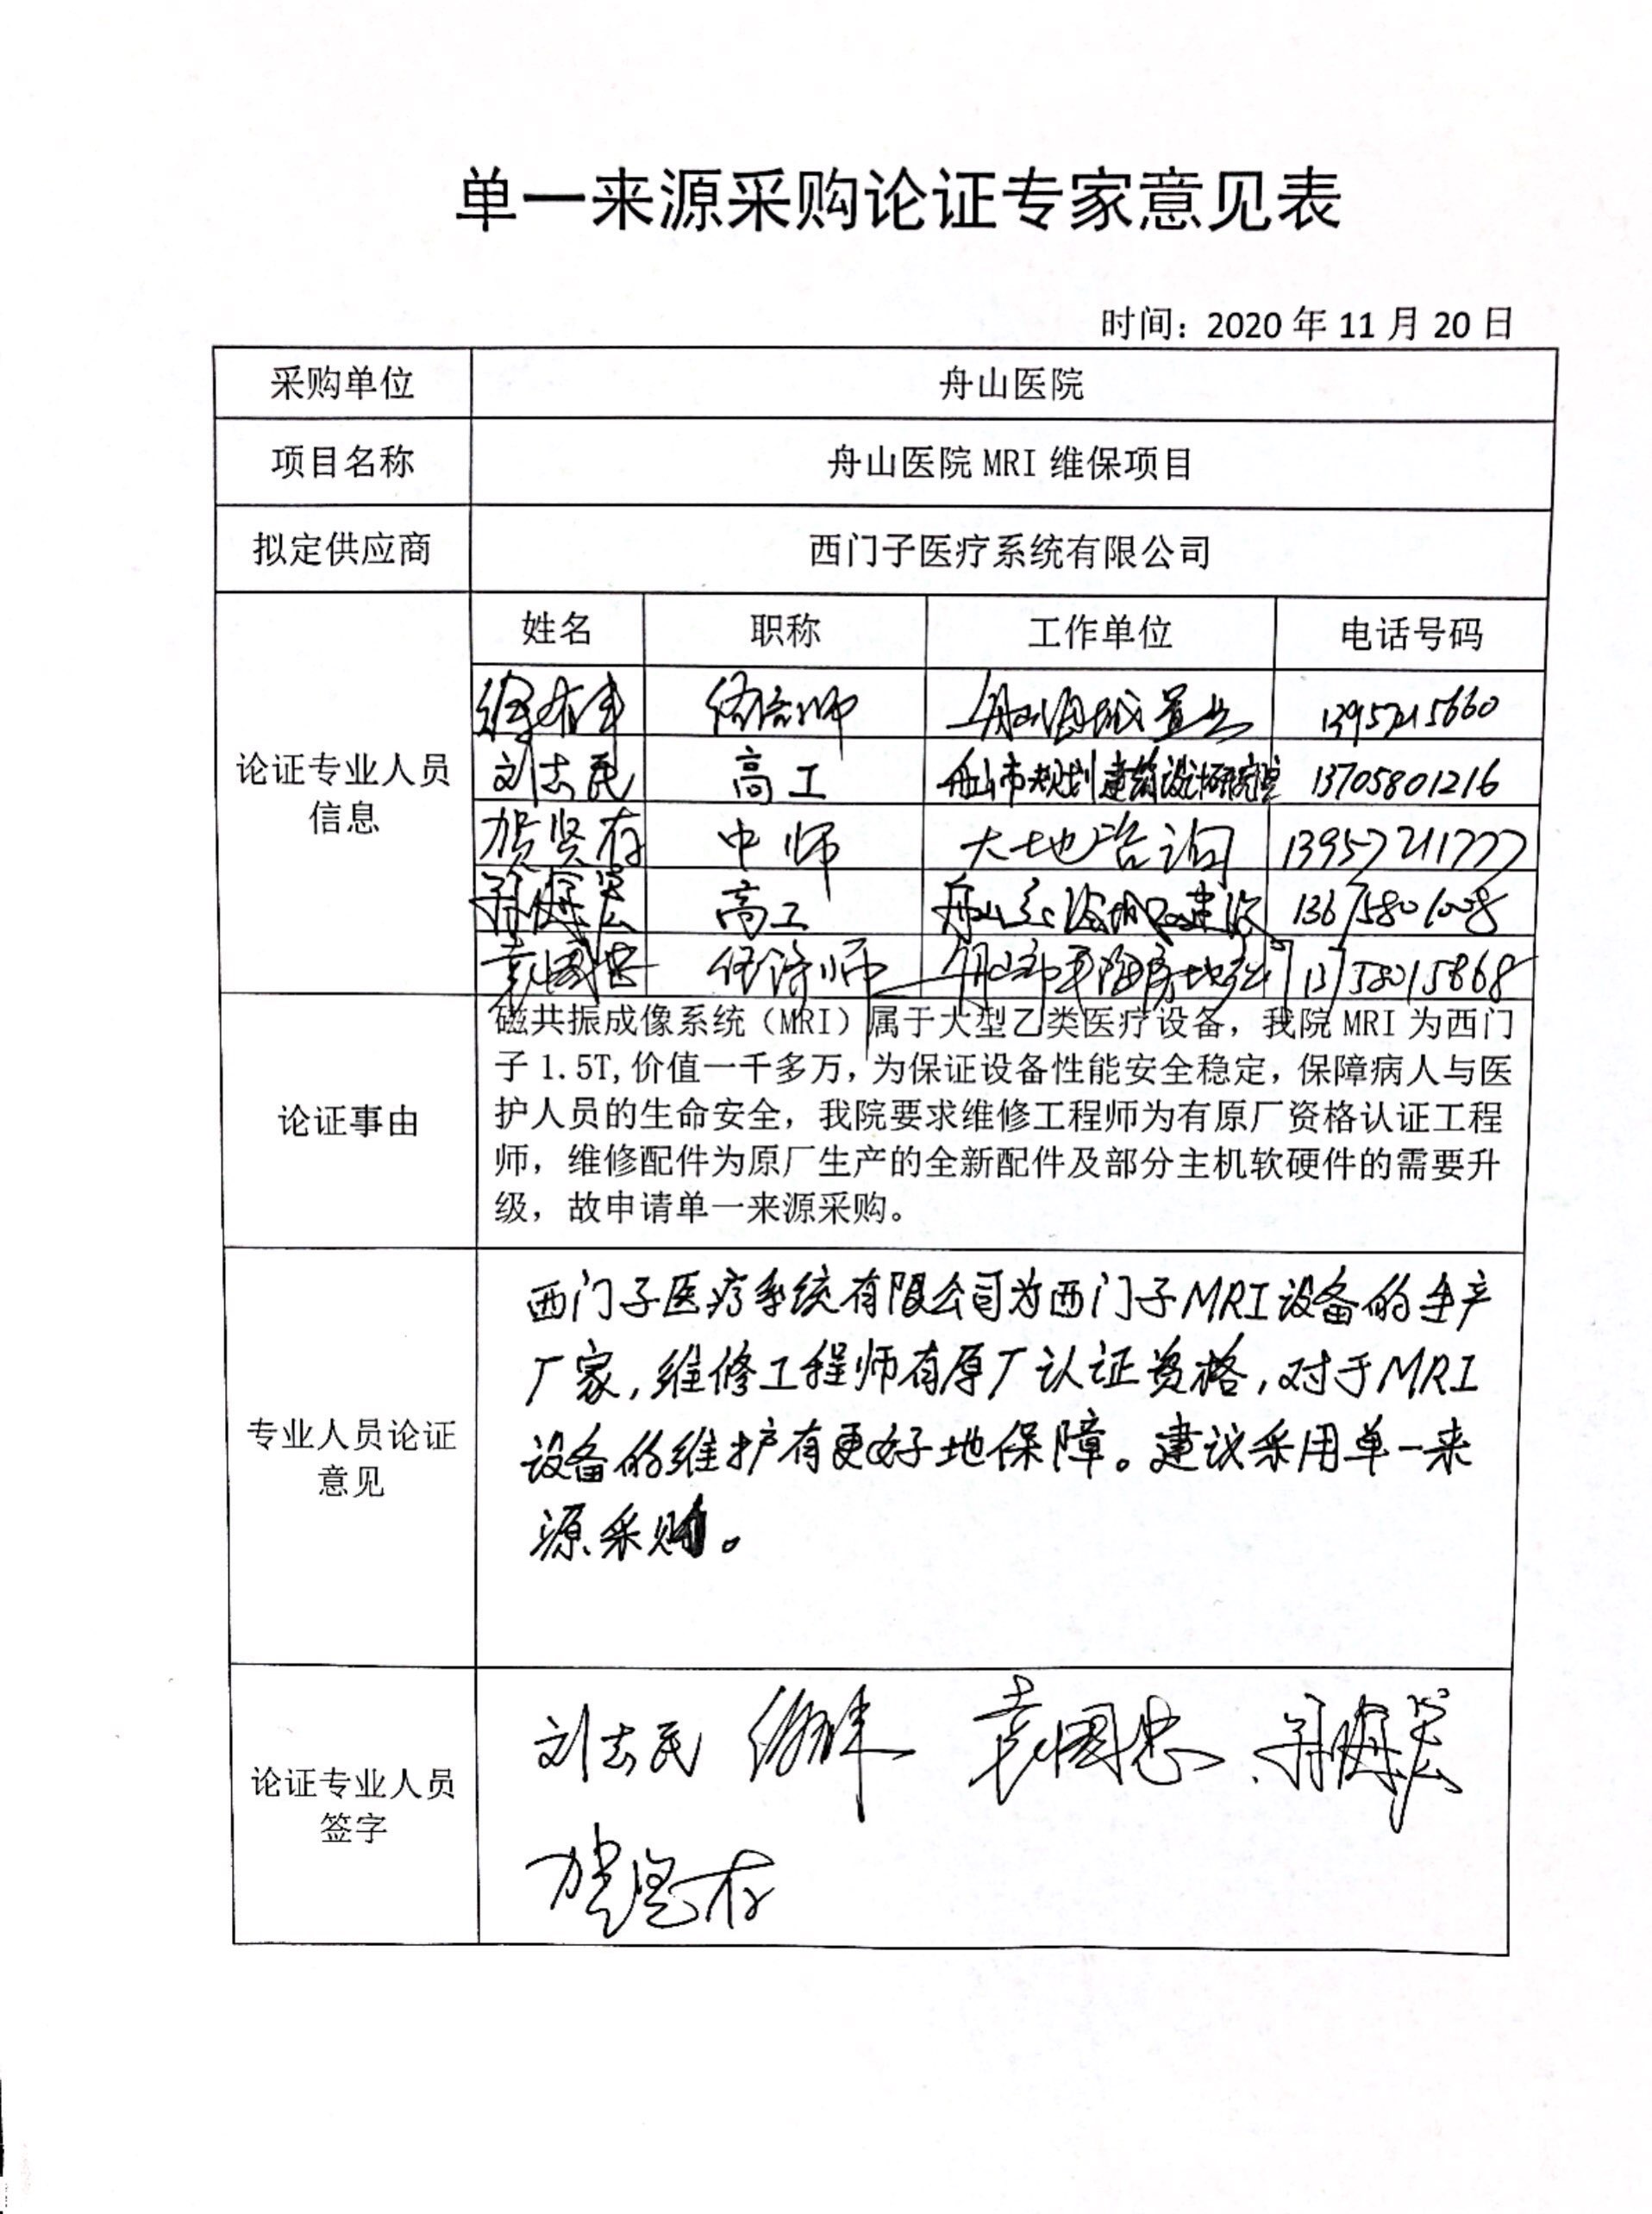 单一来源采购论证专家意见表
时间：2020 年 11 月 20 日
采购单位 舟山医院
项目名称 舟山医院 MRI 维保项目
拟定供应商 西门子医疗系统有限公司
论证专业人员信息
姓名 职称 工作单位 电话号码
刘志民 高工 舟山市规划建筑设计研究院 13705801216
贺贤存 中师 大地咨询 13957211777
高工
袁国忠 经济师
论证事由
磁共振成像系统（MRI）属于大型乙类医疗设备，我院 MRI 为西门
子 1.5T,价值一千多万，为保证设备性能安全稳定，保障病人与医
护人员的生命安全，我院要求维修工程师为有原厂资格认证工程
师，维修配件为原厂生产的全新配件及部分主机软硬件的需要升
级，故申请单一来源采购。
专业人员论证
意见
西门子医疗系统有限公司为西门子MRI设备的生产
厂家,维修工程师有原厂认证资格,对于MRI
设备的维护有更好地保障。建议采用单一来
源采购。
论证专业人员
签字
刘志民 袁国忠
贺贤存